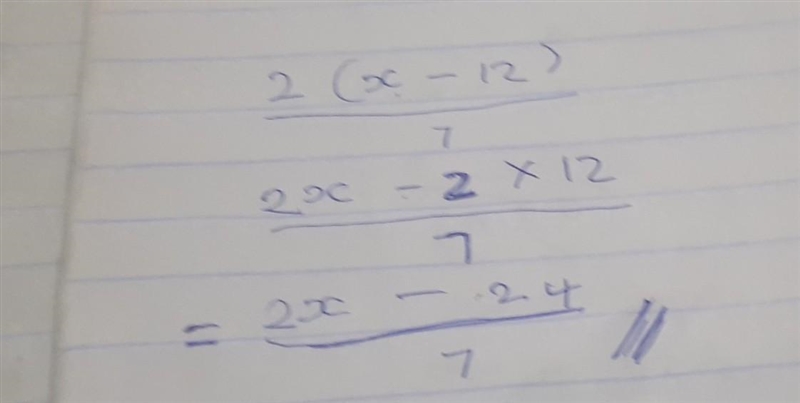 2 (x - 12)
7
2x - 2 × 12
7
= 2x - 24 //
7